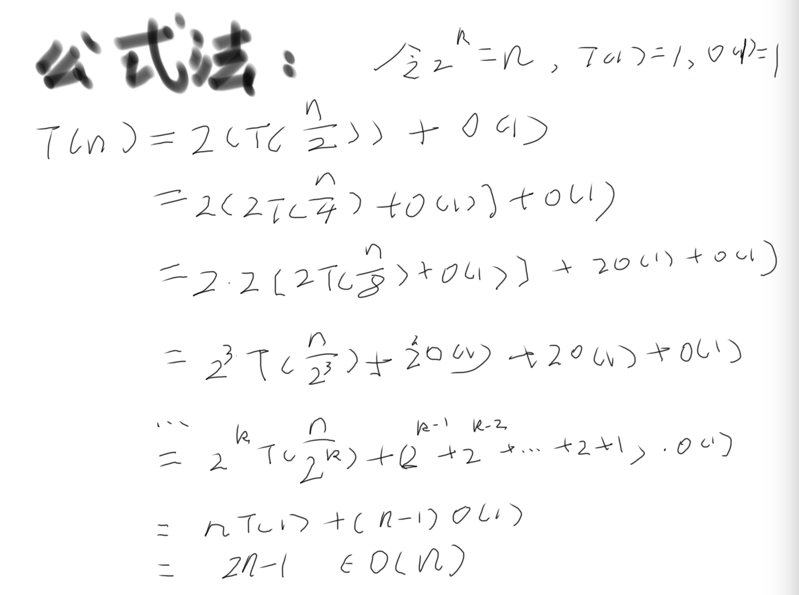 公式法: 令2^k=n, T(1)=1, O(1)=1
T(n)=2(T(n/2))+O(1)
=2(2T(n/4)+O(1)]+O(1)
=2·2[2T(n/8)+O(1)]+2O(1)+O(1)
=2^3 T(n/2^3)+2^2O(1)+2O(1)+O(1)
...
=2^k T(n/2^k)+(2^{k-1}+2^{k-2}+...+2+1)·O(1)
=nT(1)+(n-1)O(1)
=2n-1 ∈O(n)